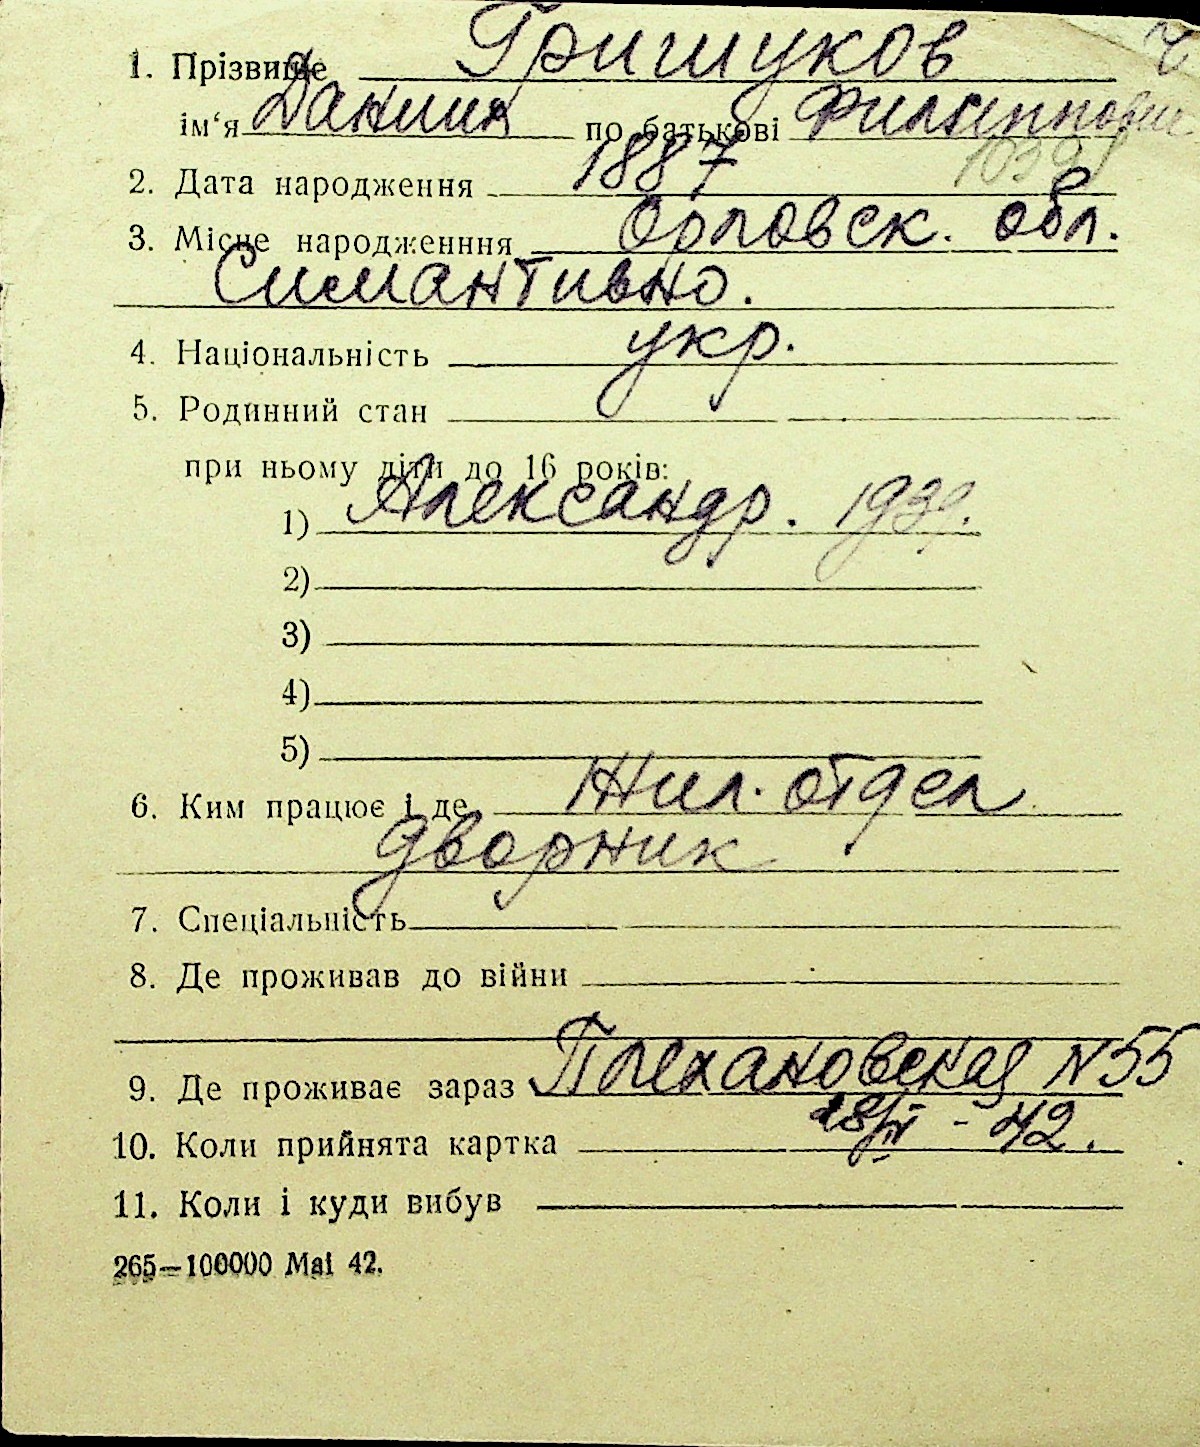 1. Прізвище Гришуков
ім‘я Даниил по батькові Филиппович
2. Дата народження 1887
3. Місце народженння Орловск. обл.
Симантивно.
4. Національність укр.
5. Родинний стан
при ньому діти до 16 років:
1) Александр. 1939.
2)
3)
4)
5)
6. Ким працює і де Жил. отдел
дворник
7. Спеціальність
8. Де проживав до війни
9. Де проживає зараз Плехановская N 55
10. Коли прийнята картка - 42.
11. Коли і куди вибув
265—100000 Mai 42.